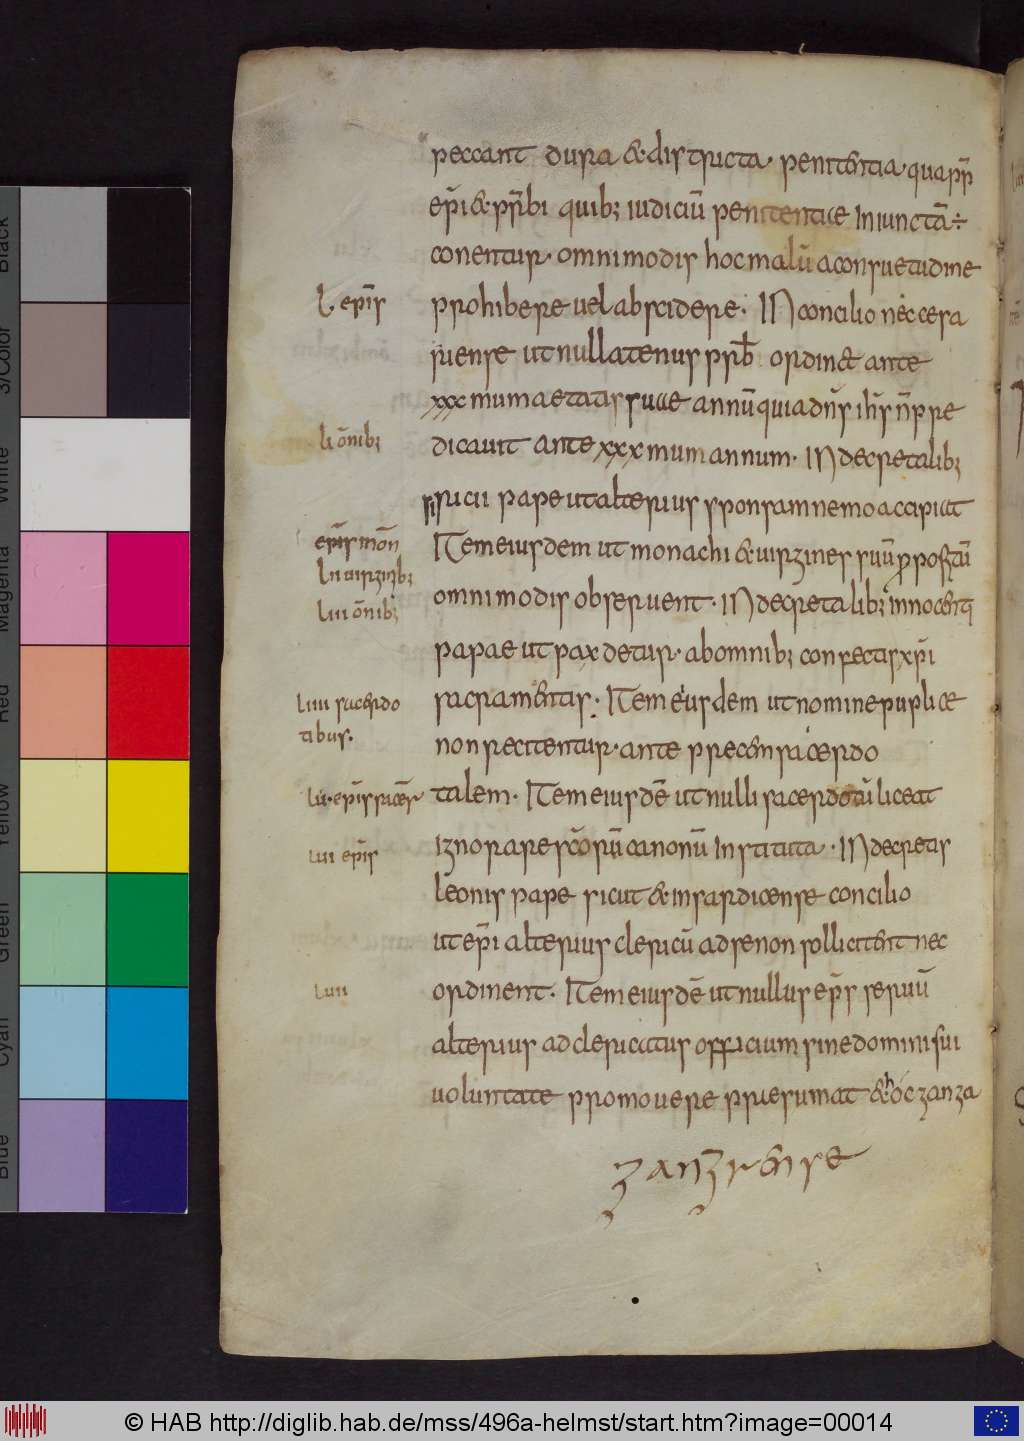 peccant dura & districta. penitentia. quapp̄
ep̄i &. pr̄bi quib; iudiciū penitentiae iniunctā ÷
conentur. omnimodis hoc malū aconsuetudine
l. epīs
prohibere uel abscidere. IN concilio neccesa
riense ut nullatenus pr̄b ordinet ante
xxx mum aetatis suae annū quia dn̄s ih̄s n̄ pre
li ōnib;
dicauit ante xxx mum annum. IN decretalib;
siricii pape ut alterius sponsam nemo accipiat
epīs mōn
Item eiusdem ut monachi & uirgines suū ꝓpositū
lii uirginib;
liii ōnib;
omnimodis obseruent. IN decretalib; innocenti
papae ut pax detur. ab omnib; confectis xp̄i
liiii sacerdo
tibus.
sacramentis. Item eiusdem ut nomine puplice
non recitentur. ante precem sacerdo
lu. epīs sacer̄
talem. Item eiusdē ut nulli sacerdotū liceat
lui epīs
ignorare scōrū canonū instituta. IN decretis
leonis pape sicut & in sardicense concilio
ut ep̄i alterius clericū ad se non sollicitent nec
luii
ordinent. Item eiusdē ut nullus ep̄s seruū
alterius ad clericatus officium sine domini sui
uoluntate promouere praesumat & hoc gan ga
Black
3/Color
White
Magenta
Red
Yellow
Green
Cyan
Blue
© HAB http://diglib.hab.de/mss/496a-helmst/start.htm?image=00014